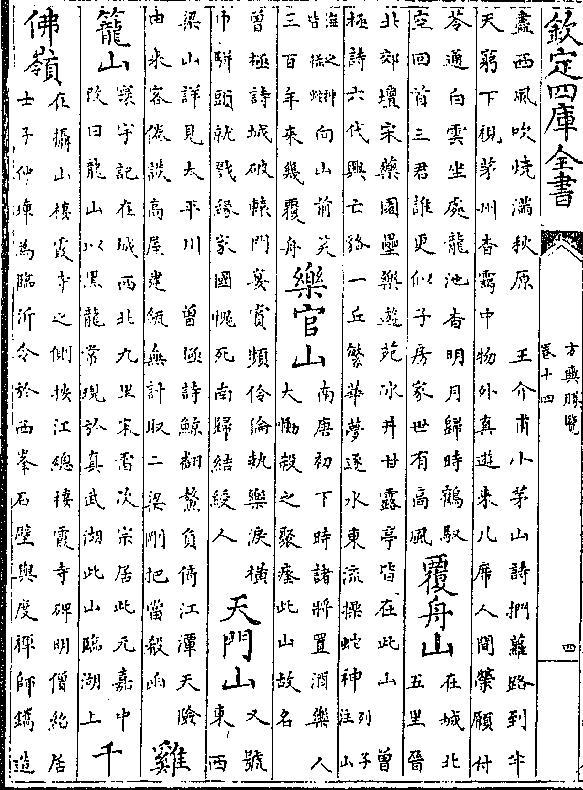 欽定四庫全書
方輿勝覽
卷十四
四
盡西風吹燒滿秋原　王介甫小茅山詩捫蘿路到半
天窮下視茅州杳靄中物外真遊來几席人間榮願付
苓通白雲坐處龍池杳明月歸時鶴馭
空回首三君誰更似子房家世有高風
覆舟山
在城北
五里晉
北郊壇宋藥園壘樂遊苑冰井甘露亭皆在此山　曾
極詩六代興亡貉一丘繁華夢逐水東流操蛇神列子注山
海之神皆操蛇向山前笑
三百年來幾覆舟
樂官山
南唐初下時諸將置酒樂人
大慟殺之聚瘞此山故名
曾極詩城破轅門宴賞頻伶倫執樂淚橫
巾駢頭就戮緣家國愧死南歸結綬人
天門山
又號
東西
梁山詳見太平川　曾極詩鯨翻鰲負倚江潭天險
由來客倦談高屋建瓴無計取二梁剛把當殽函
雞
籠山
寰宇記在城西北九里宋雷次宗居此元嘉中
改曰龍山以黑龍常現於真武湖此山臨湖上
千
佛嶺
在攝山棲霞寺之側按江總棲霞寺碑明僧紹居
士子仲璋為臨沂令於西峯石壁與度禪師鐫造